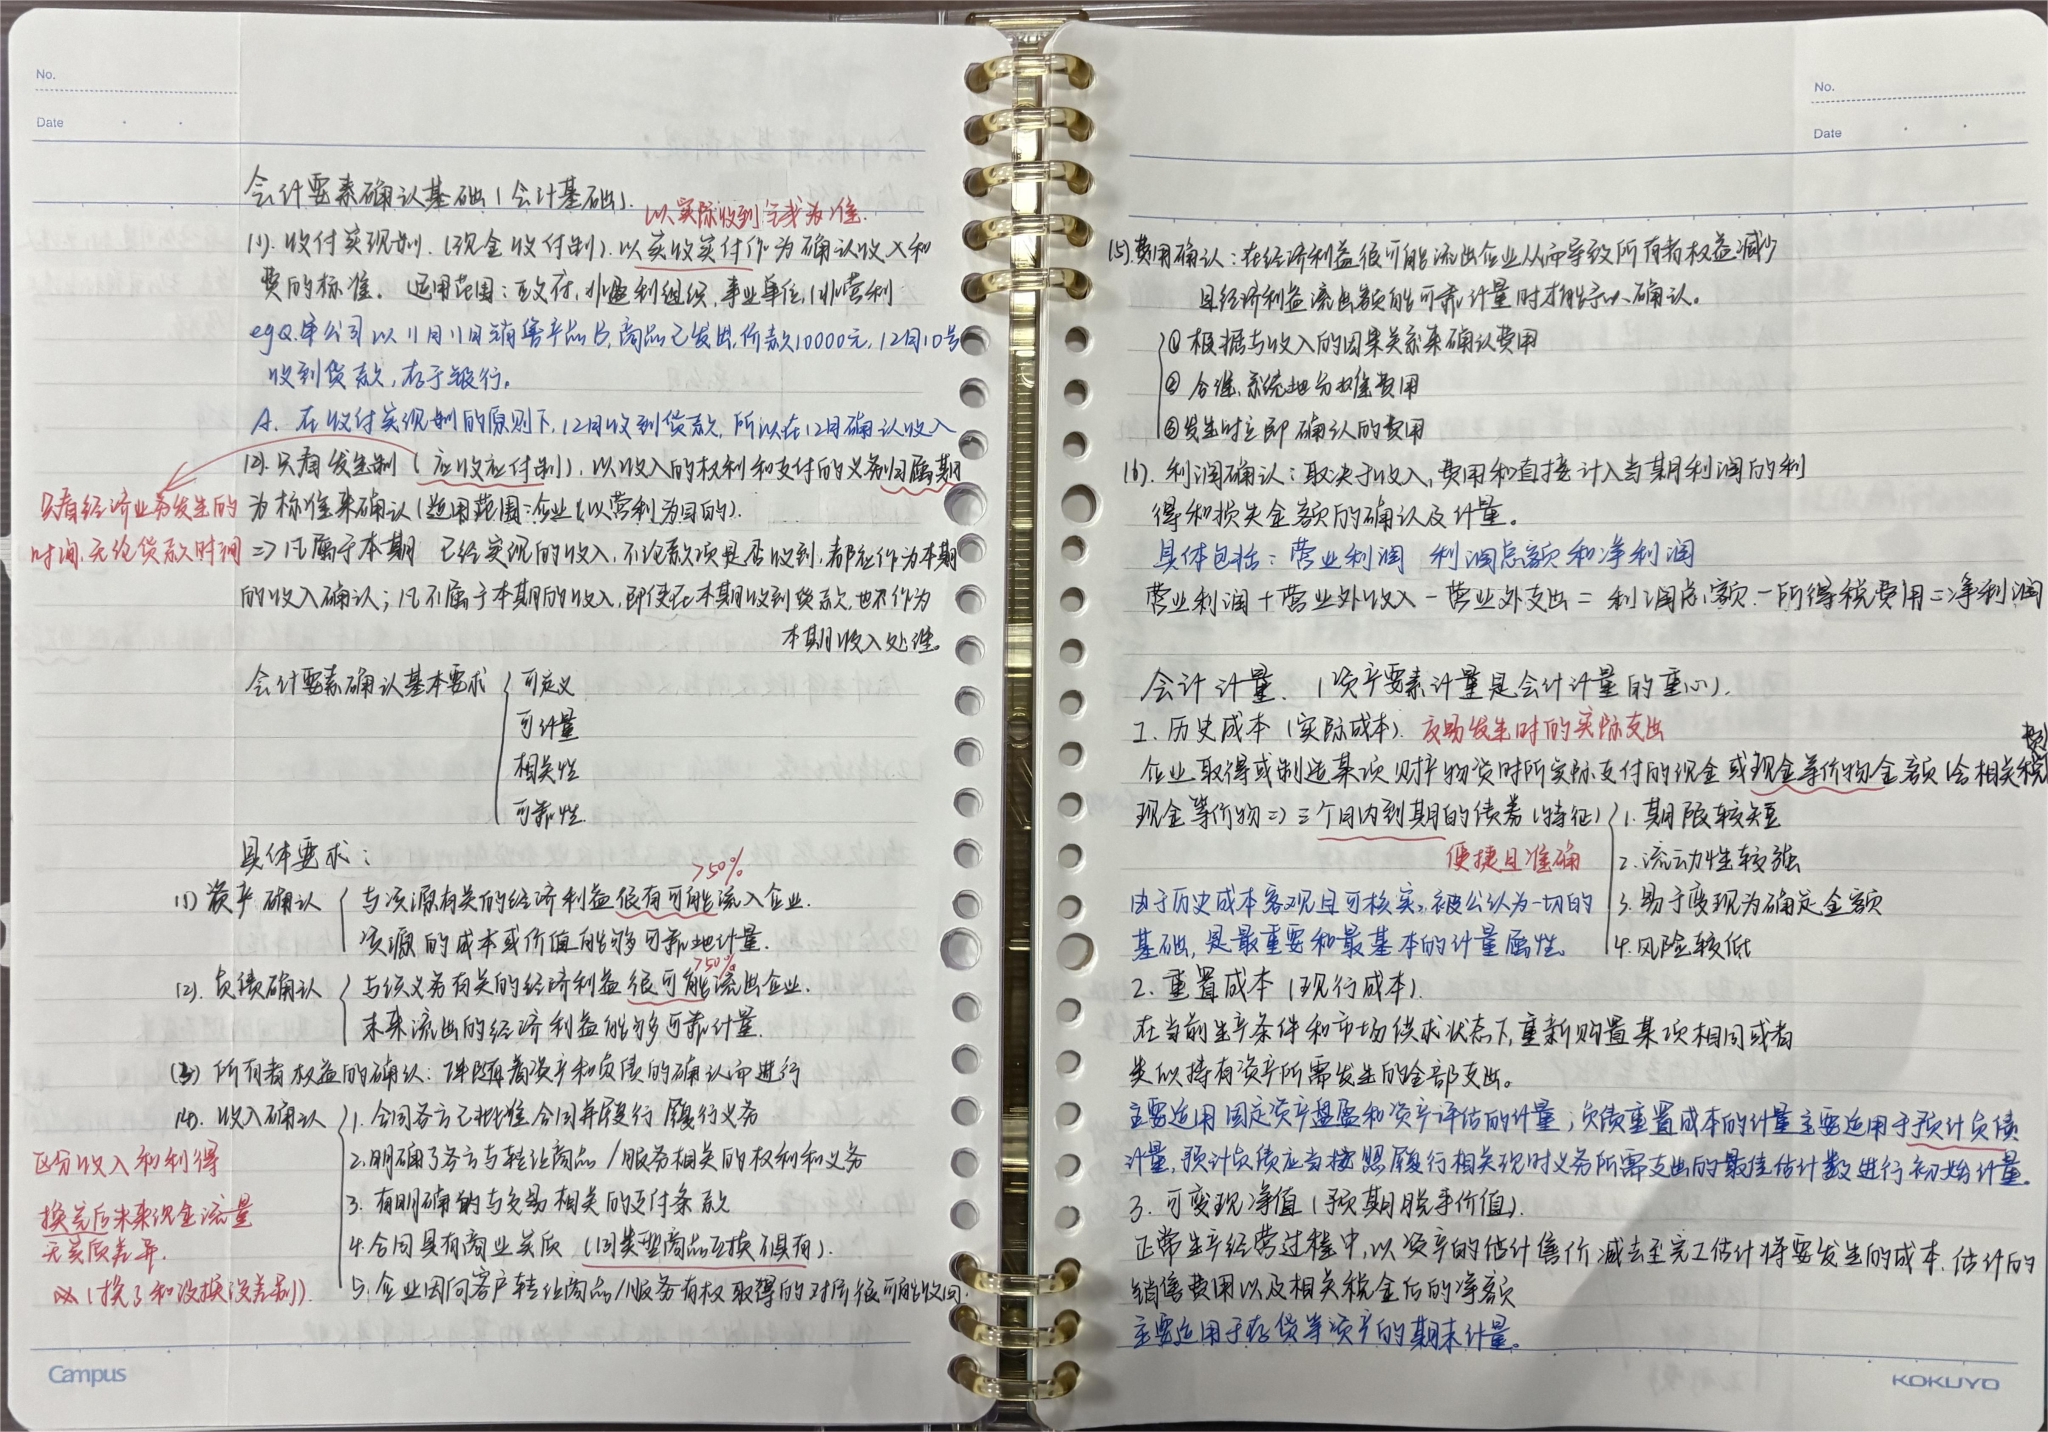 No.
Date
会计要素确认基础（会计基础）.
以实际收到完成为准.
(1). 收付实现制.（现金收付制）. 以实收实付作为确认收入和
费的标准. 适用范围：政府, 非盈利组织, 事业单位,（非营利
egQ. 单公司以11月11日销售产品B, 商品已发出, 价款10000元, 12月10号
收到货款, 存于银行.
A. 在收付实现制的原则下, 12月收到货款, 所以在12月确认收入
(2). 只看发生制（应收应付制）, 以收入的权利和支付的义务归属期
只看经济业务发生的
为标准来确认（适用范围：企业（以营利为目的）.
时间, 无论货款时间
=> 凡属于本期 已经实现的收入, 不论款项是否收到, 都应作为本期
的收入确认；凡不属于本期的收入, 即使在本期收到货款, 也不作为
本期收入处理.
会计要素确认基本要求
可定义
可计量
相关性
可靠性.
具体要求：
>50%
(1) 资产确认
与资源有关的经济利益很有可能流入企业.
资源的成本或价值能够可靠地计量.
>50%
(2). 负债确认
与该义务有关的经济利益很可能流出企业.
未来流出的经济利益能够可靠计量.
(3) 所有者权益的确认：伴随着资产和负债的确认而进行
(4). 收入确认
1. 合同各方已批准合同并履行 履行义务
区分收入和利得
2. 明确了各方与转让商品/服务相关的权利和义务
3. 有明确的与交易相关的支付条款
换完后未来现金流量
无实质差异.
4. 合同具有商业实质（同类型商品互换不具有）.
（换了和没换没差别）.
5. 企业因向客户转让商品/服务有权取得的对价很可能收回.
Campus
No.
Date
(5). 费用确认：在经济利益很可能流出企业从而导致所有者权益减少
且经济利益流出额能可靠计量时才能予以确认.
① 根据与收入的因果关系来确认费用
② 合理、系统地分摊费用
③ 发生时立即确认的费用
(6). 利润确认：取决于收入, 费用和直接计入当期利润的利
得和损失金额的确认及计量.
具体包括：营业利润 利润总额和净利润
营业利润+营业外收入-营业外支出= 利润总额.-所得税费用=>净利润
会计计量. （资产要素计量是会计计量的重心）.
1. 历史成本（实际成本）. 交易发生时的实际支出
企业取得或制造某项财产物资时所实际支付的现金或现金等价物金额（含相关税
费）
现金等价物=> 三个月内到期的债券（特征）
1. 期限较短
便捷且准确
2. 流动性较强
由于历史成本客观且可核实, 被公认为一切的
3. 易于变现为确定金额
基础, 是最重要和最基本的计量属性.
4. 风险较低
2. 重置成本（现行成本）.
在当前生产条件和市场供求状态下, 重新购置某项相同或者
类似持有资产所需发生的全部支出.
主要适用固定资产盘盈和资产评估的计量；负债重置成本的计量主要适用于预计负债
计量, 预计负债应当按照履行相关现时义务所需支出的最佳估计数进行初始计量.
3. 可变现净值（预期脱手价值）.
正常生产经营过程中, 以资产的估计售价减去至完工估计将要发生的成本, 估计的
销售费用以及相关税金后的净额
主要适用于存货等资产的期末计量.
KOKUYO